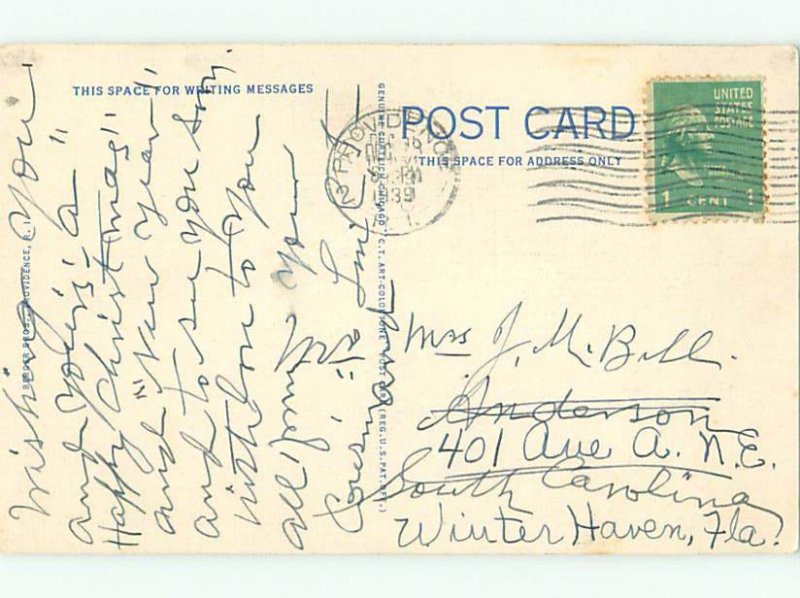 THIS SPACE FOR WRITING MESSAGES
Wishing You
and Yours "a"
Happy Christmas"
and "New Year"
and to see you Soon.
with love to You
all from Your
Cousin
Mr. and
BERGER BROS., PROVIDENCE, R. I.
GENUINE CURTEICH-CHICAGO "C.T. ART-COLORTONE" POST CARD (REG. U.S. PAT. OFF.)
POST CARD
THIS SPACE FOR ADDRESS ONLY
PROVIDENCE
2
1939
R.I.
UNITED
STATES
POSTAGE
1 CENT 1
Mrs J. M. Bell.
Anderson
401 Ave A. N.E.
South Carolina
Winter Haven, Fla.